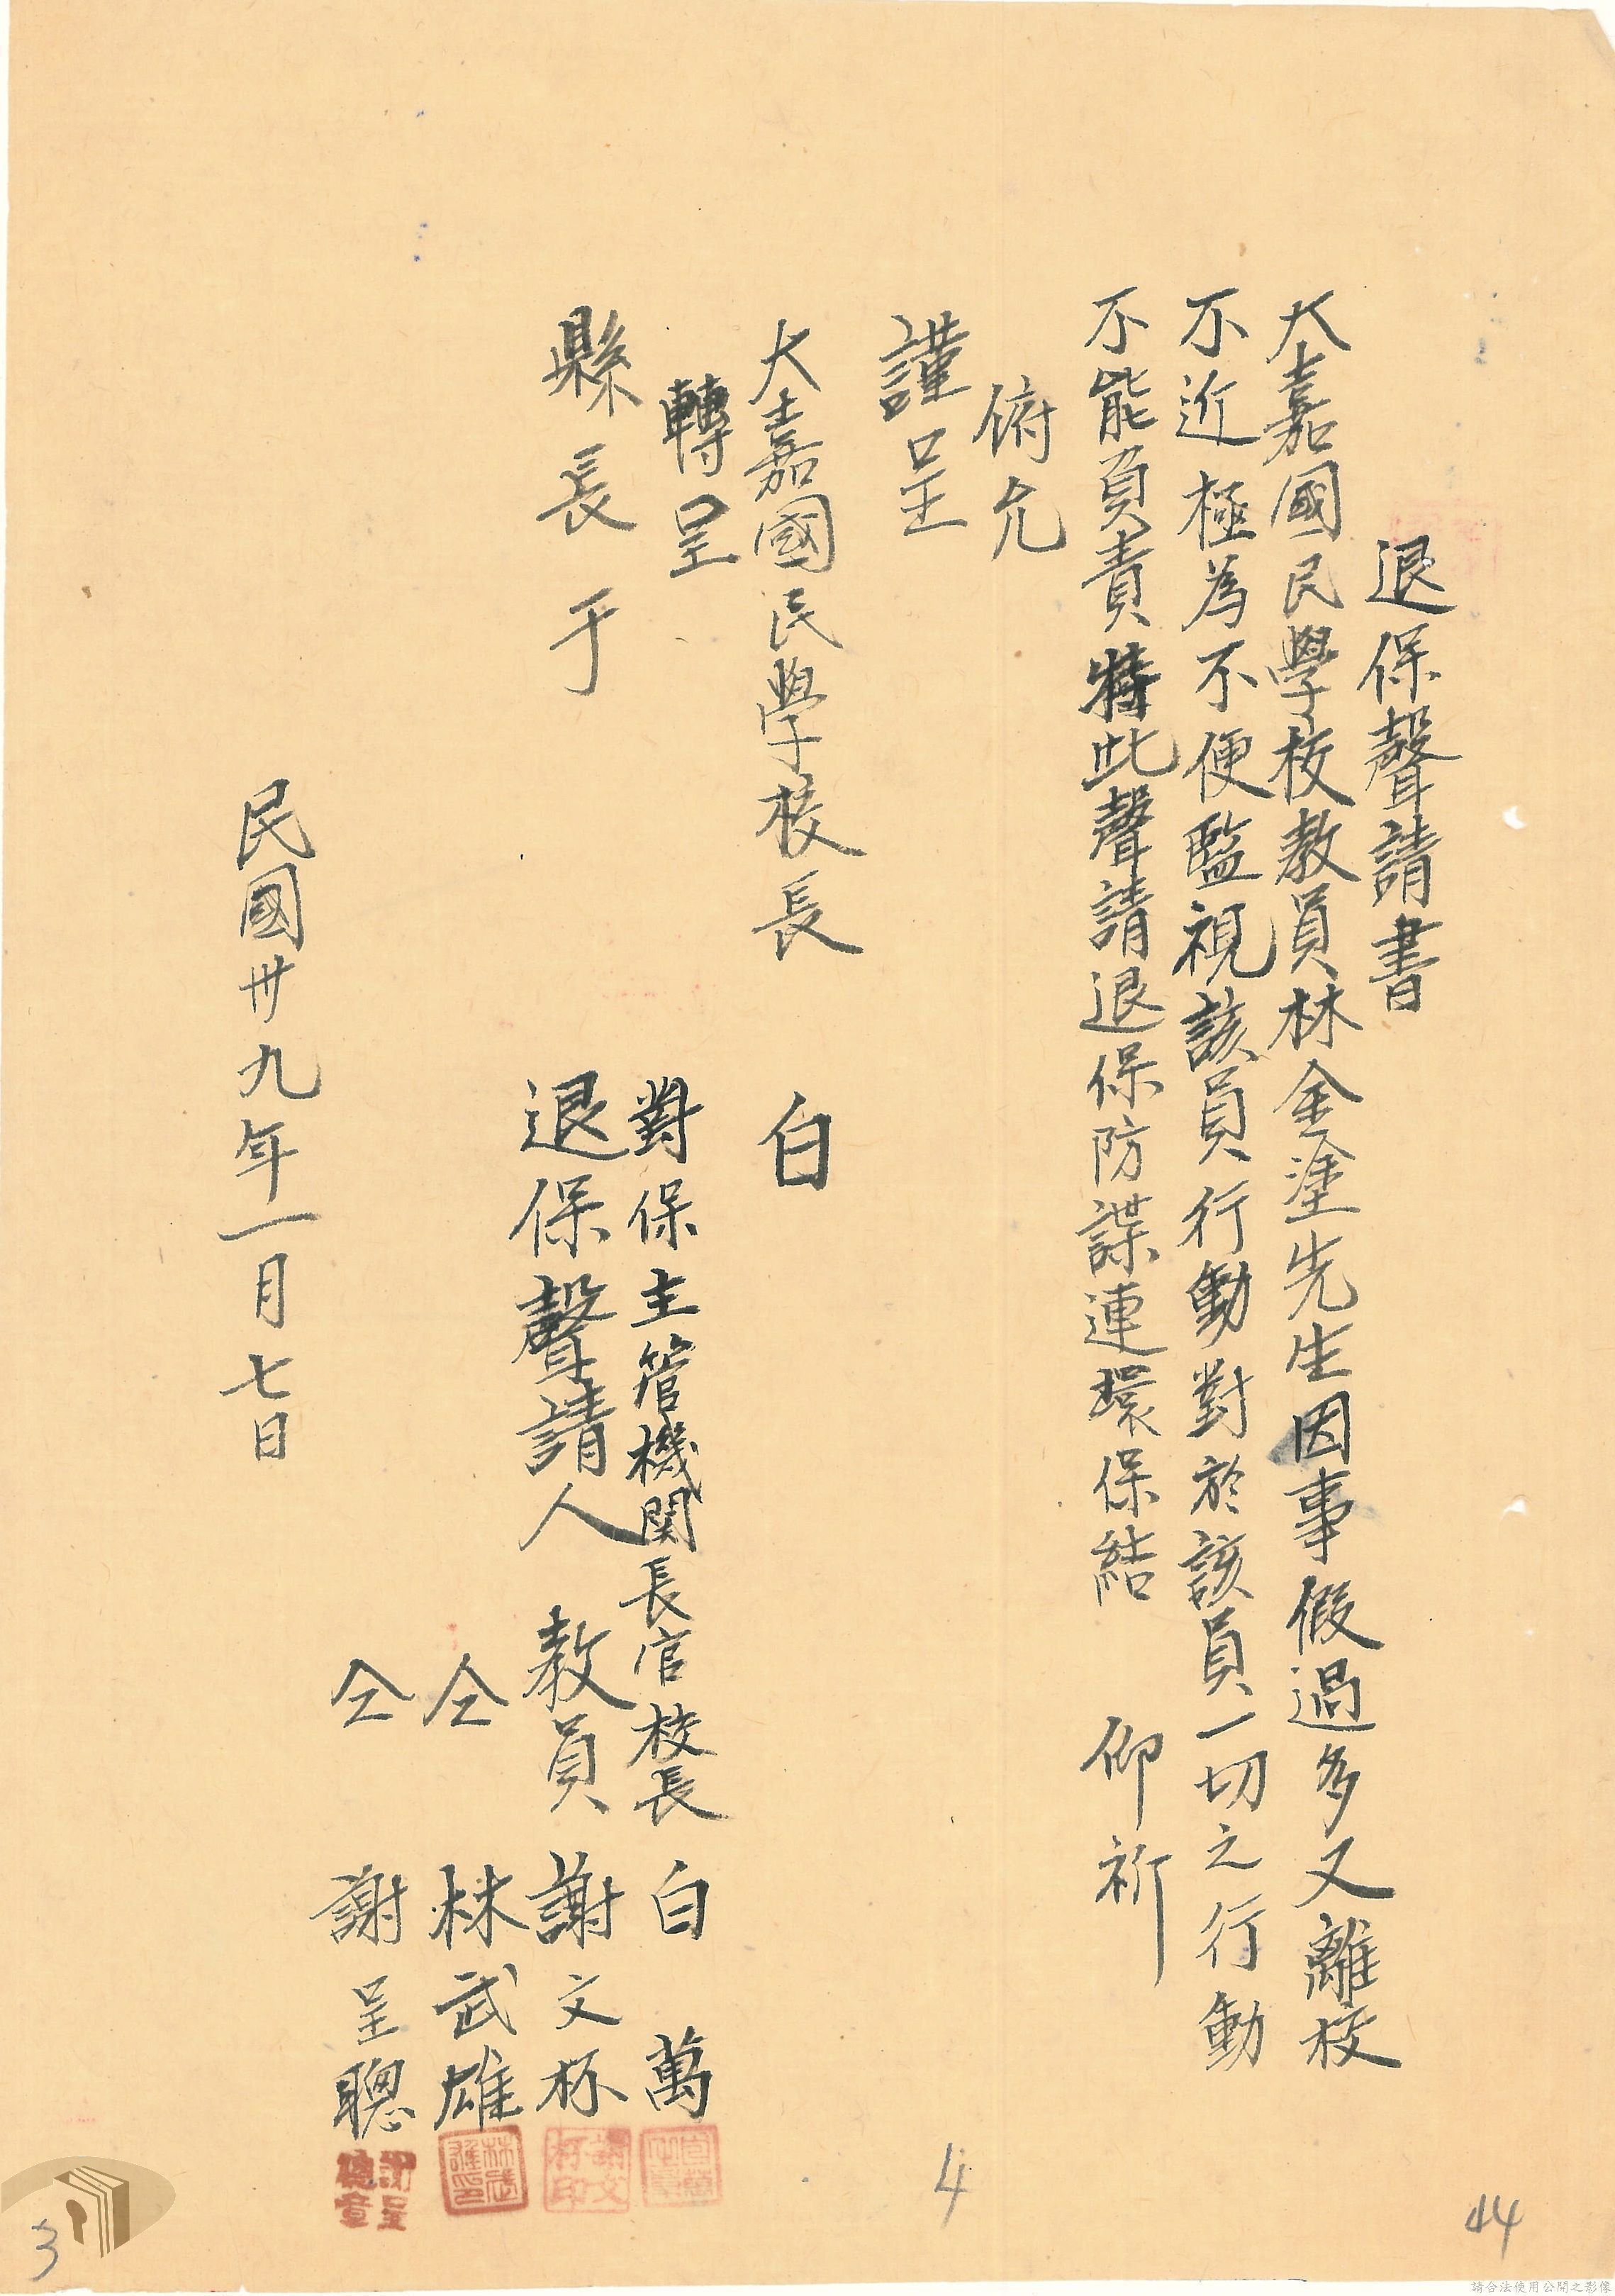 退保聲請書
大嘉國民學校教員林金塗先生因事假過多又離校
不近極為不便監視該員行動對於該員一切之行動
不能負責特此聲請退保防諜連環保結　仰祈
俯允
謹呈
大嘉國民學校長　白
轉呈
縣長于
對保主管機関長官校長　白萬
退保聲請人　教員　謝文杯
仝　林武雄
仝　謝呈聰
民國卅九年一月七日
林武雄印
謝文杯印
謝呈聰章
4
44
3
請合法使用公開之影像